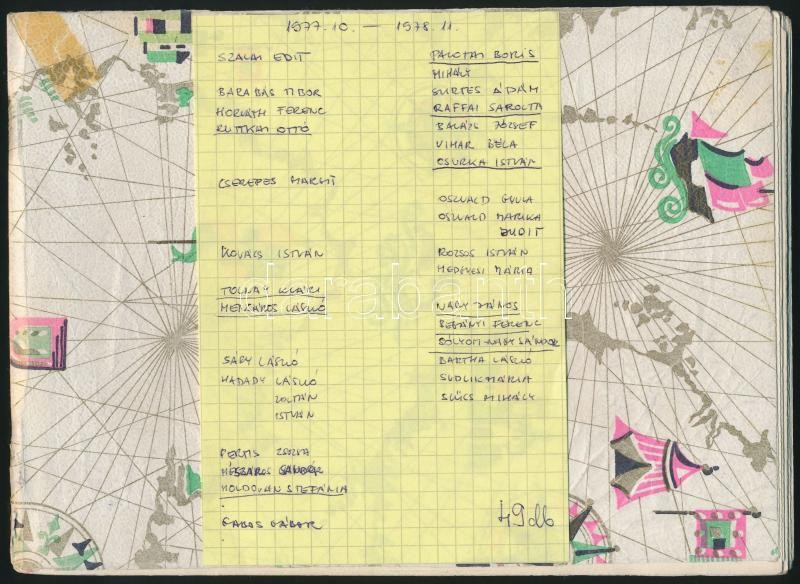 1977.10. — 1978.11.
SZALAI EDIT
BARABÁS TIBOR
HORVÁTH FERENC
RUTTKAI OTTÓ
CSEREPES MARGIT
KOVÁCS ISTVÁN
TOLNAY KLÁRI
MENSÁROS LÁSZLÓ
SAÁRY LÁSZLÓ
HADADY LÁSZLÓ
ZOLTÁN
ISTVÁN
PERTIS ZSUZSA
MÉSZÁROS SÁNDOR
MOLDOVÁN STEFÁNIA
GABOS GÁBOR
PALOTAI BORIS
MIHÁLY
SZIRTES ÁDÁM
RAFFAI SAROLTA
BALÁZS JÓZSEF
VIHAR BÉLA
CSURKA ISTVÁN
OSWALD GYULA
OSWALD MARIKA
JUDIT
ROZSOS ISTVÁN
MEDGYESI MÁRIA
NAGY JÁNOS
BERÉNYI FERENC
SÓLYOM-NAGY SÁNDOR
BARTHA LÁSZLÓ
SUDLIK MÁRIA
SZŰCS MIHÁLY
49 db
darabanth